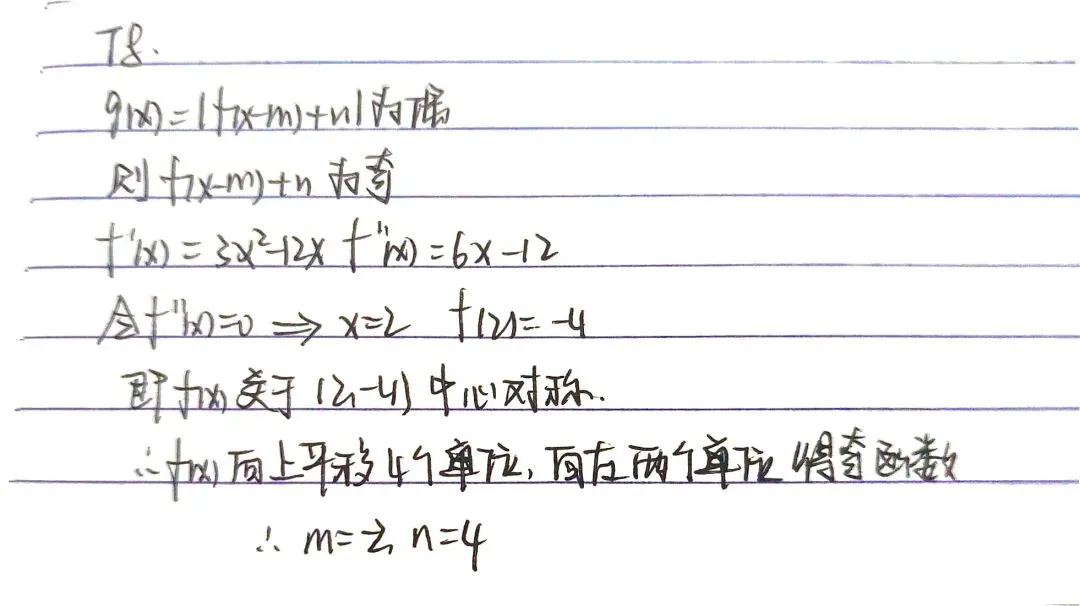 T8.
g(x)=|f(x-m)+n|为偶
则f(x-m)+n 为奇
f'(x)=3x²-12x f''(x)=6x-12
令f''(x)=0 ⇒ x=2 f(2)=-4
即f(x)关于(2,-4)中心对称.
∴f(x)向上平移4个单位,向左两个单位得奇函数
∴ m=-2, n=4